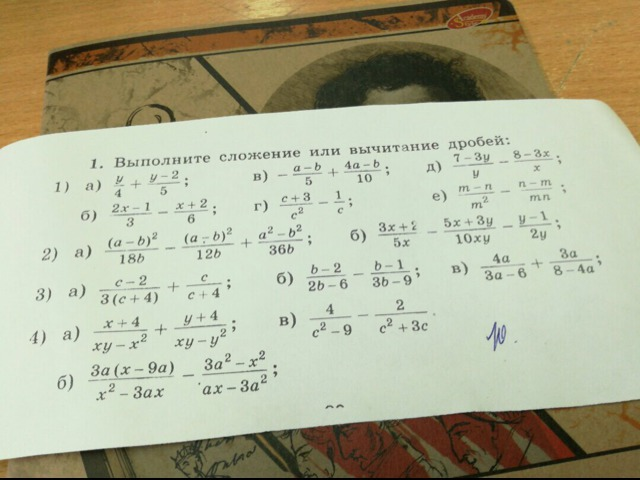 1. Выполните сложение или вычитание дробей:
1) а) y/4 + (y−2)/5; в) −(a−b)/5 + (4a−b)/10; д) (7−3y)/y − (8−3x)/x;
б) (2x−1)/3 − (x+2)/6; г) (c+3)/c² − 1/c; е) (m−n)/m² − (n−m)/mn;
2) а) (a−b)²/18b − (a−b)²/12b + (a²−b²)/36b; б) (3x+2)/5x − (5x+3y)/10xy − (y−1)/2y;
3) а) (c−2)/3(c+4) + c/(c+4); б) (b−2)/(2b−6) − (b−1)/(3b−9); в) 4a/(3a−6) + 3a/(8−4a);
4) а) (x+4)/(xy−x²) + (y+4)/(xy−y²); в) 4/(c²−9) − 2/(c²+3c)
б) 3a(x−9a)/(x²−3ax) − (3a²−x²)/(ax−3a²);